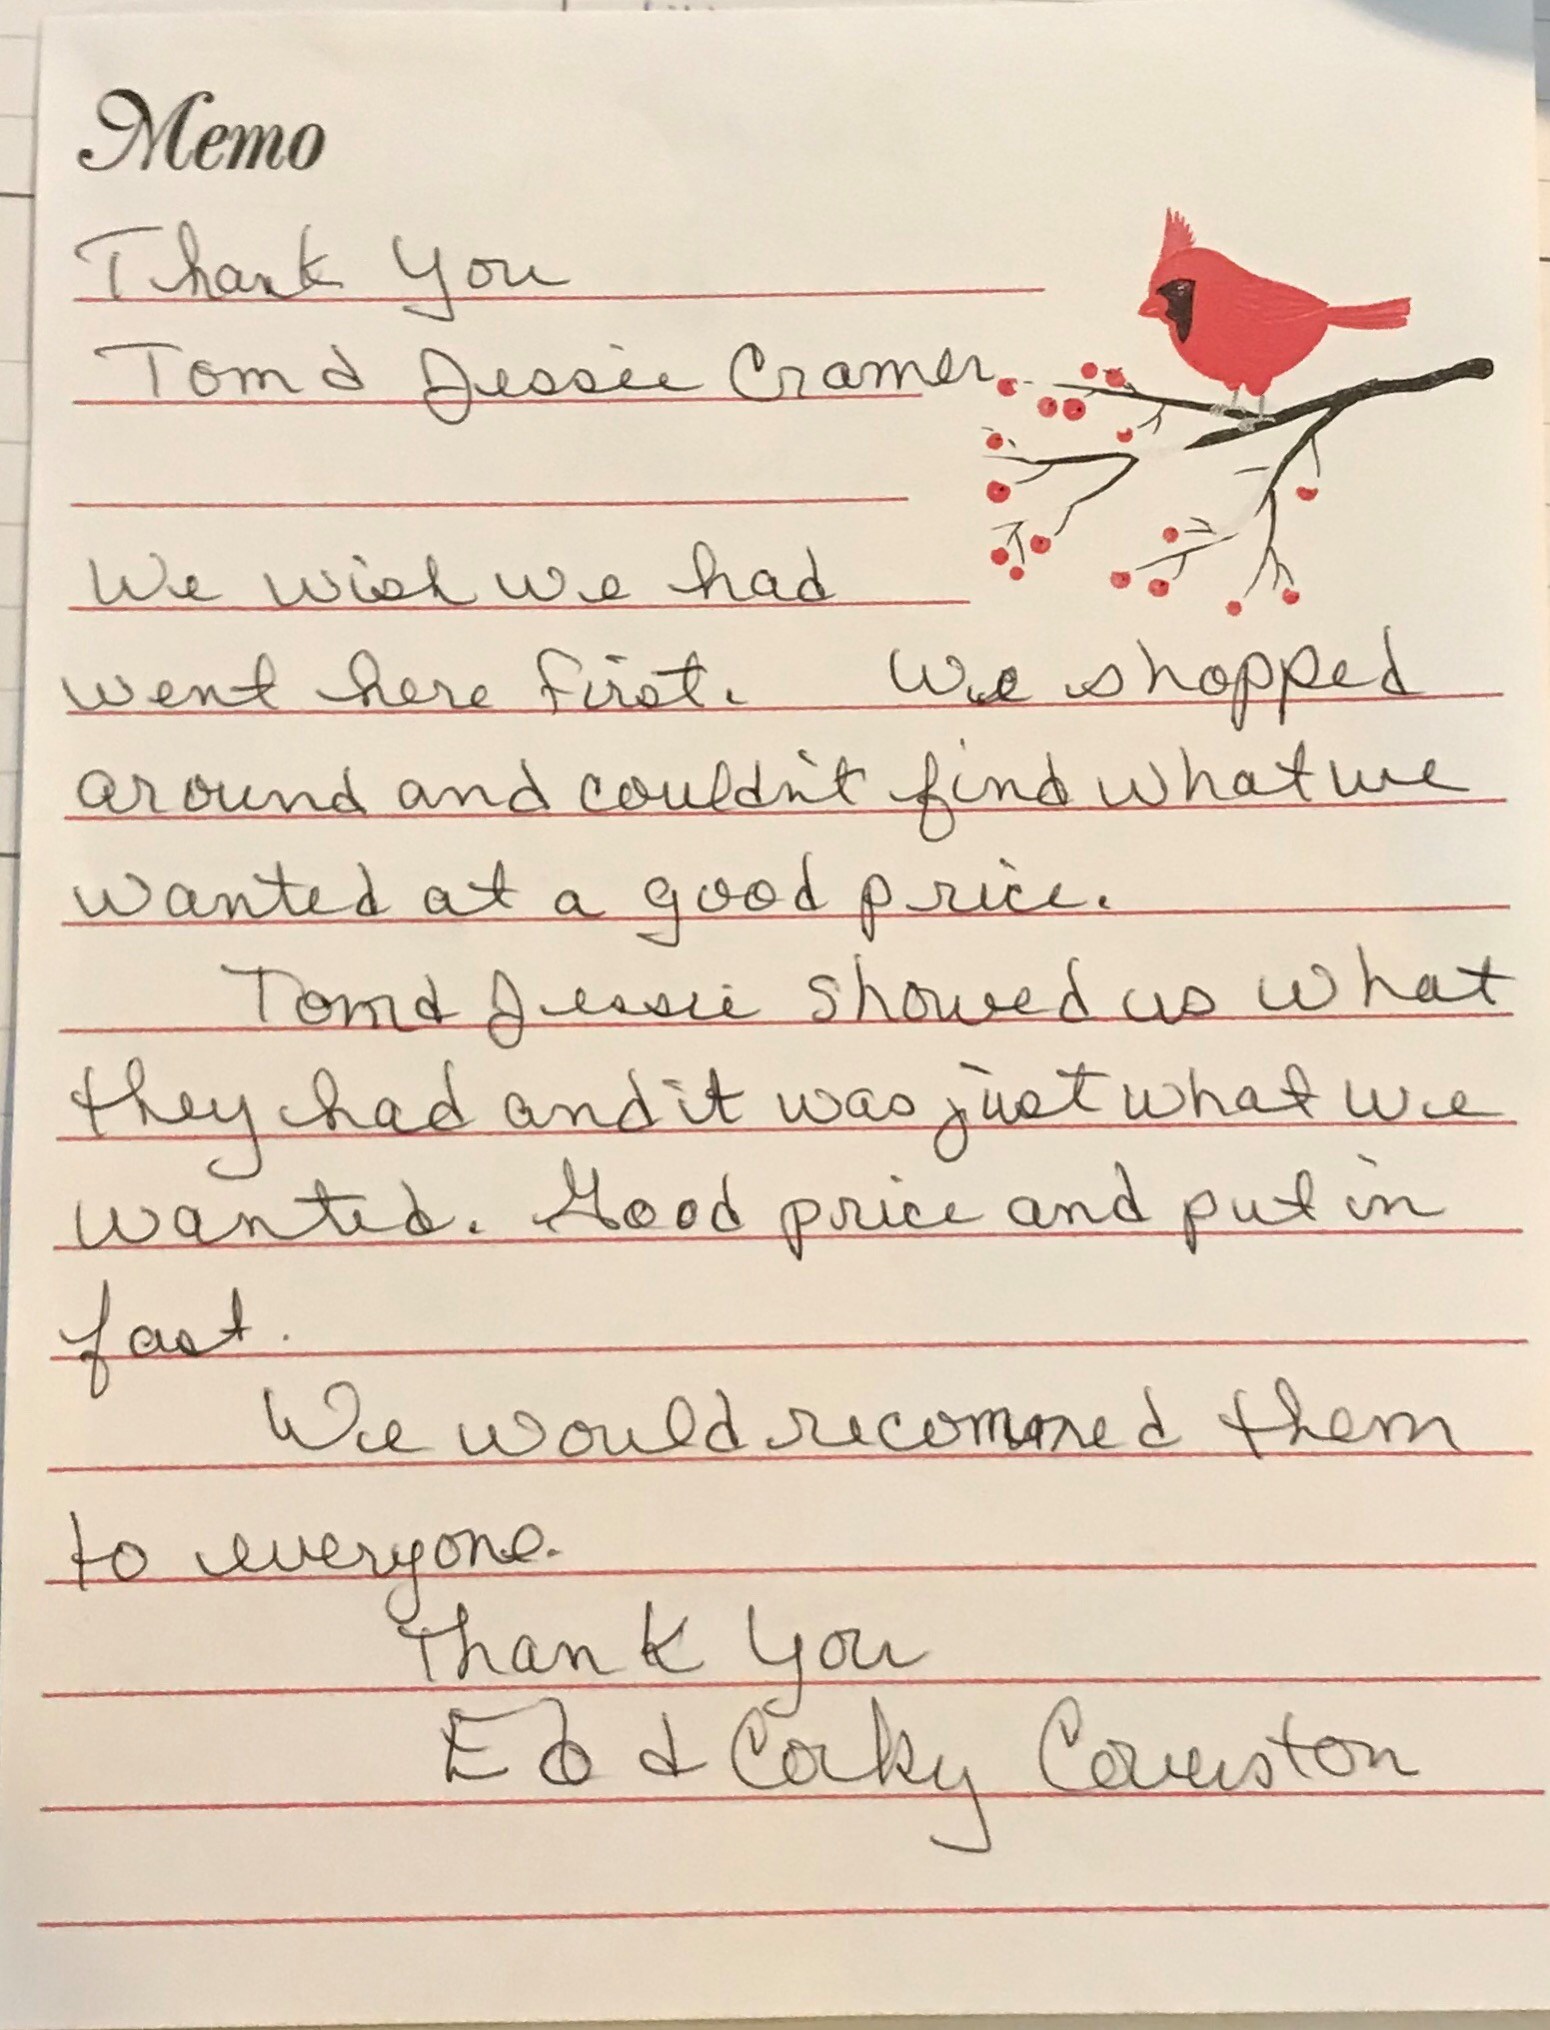 Memo
Thank You
Tom & Jessie Cramer
We wish we had
went here first. We shopped
around and couldn't find what we
wanted at a good price.
Tom & Jessie showed us what
they had and it was just what we
wanted. Good price and put in
fast.
We would recommed them
to everyone.
Thank You
Ed & Corky Coverston